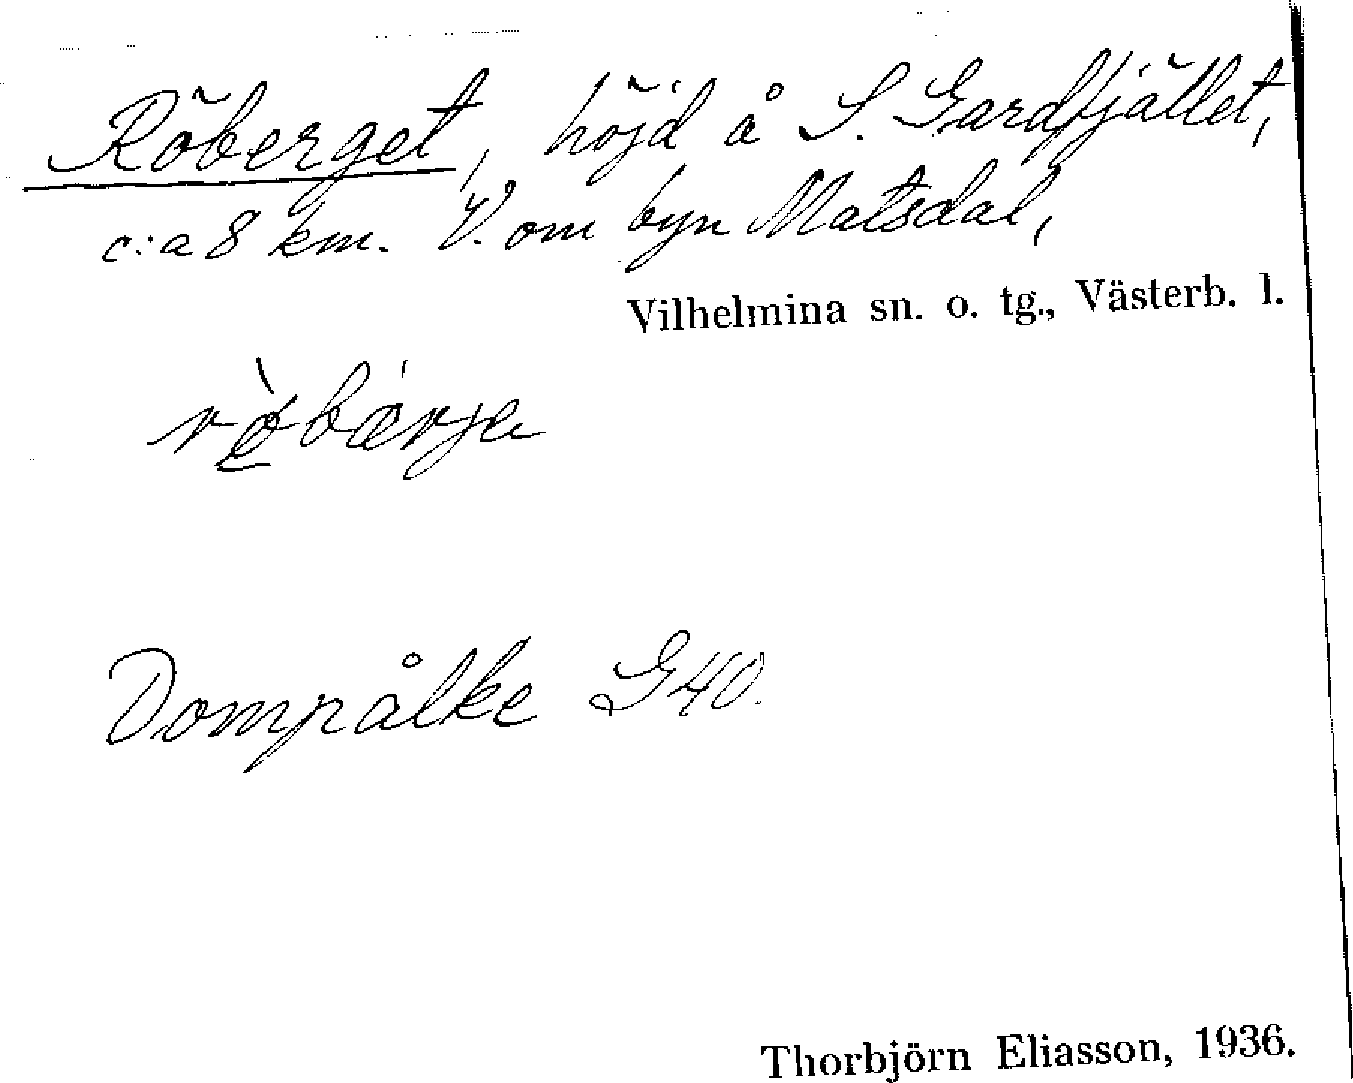 Röberget, höjd å S. Gardfjället,
c:a 8 km. V. om byn Matsdal,
Vilhelmina sn. o. tg., Västerb. l.
rø̀bárja
Dompålke G40.
Thorbjörn Eliasson, 1936.